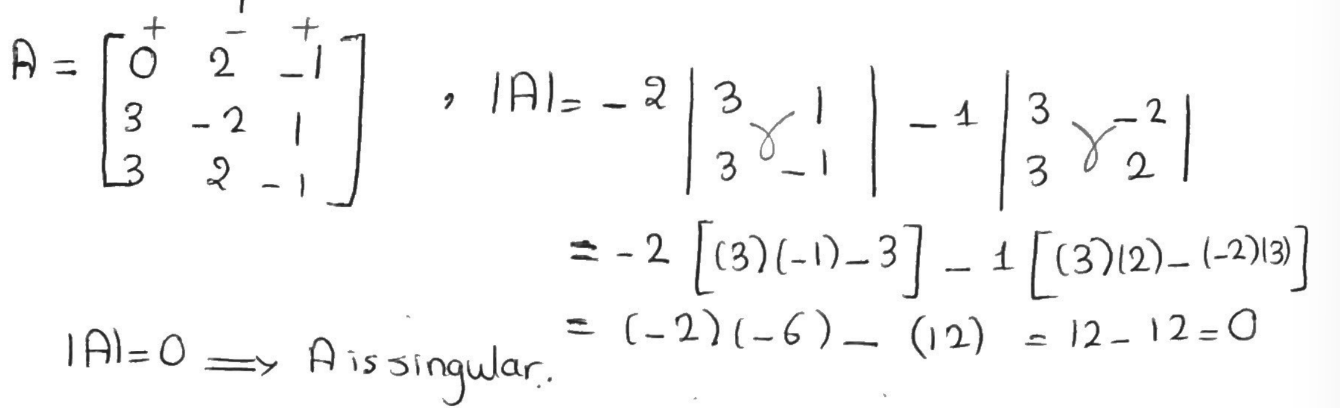 + - +
A = [0 2 -1
3 -2 1
3 2 -1] , |A| = -2 |3 1
3 -1| - 1 |3 -2
3 2|
= -2 [(3)(-1)-3] - 1 [(3)(2)-(-2)(3)]
= (-2)(-6) - (12) = 12-12=0
|A|=0 ⟹ A is singular.